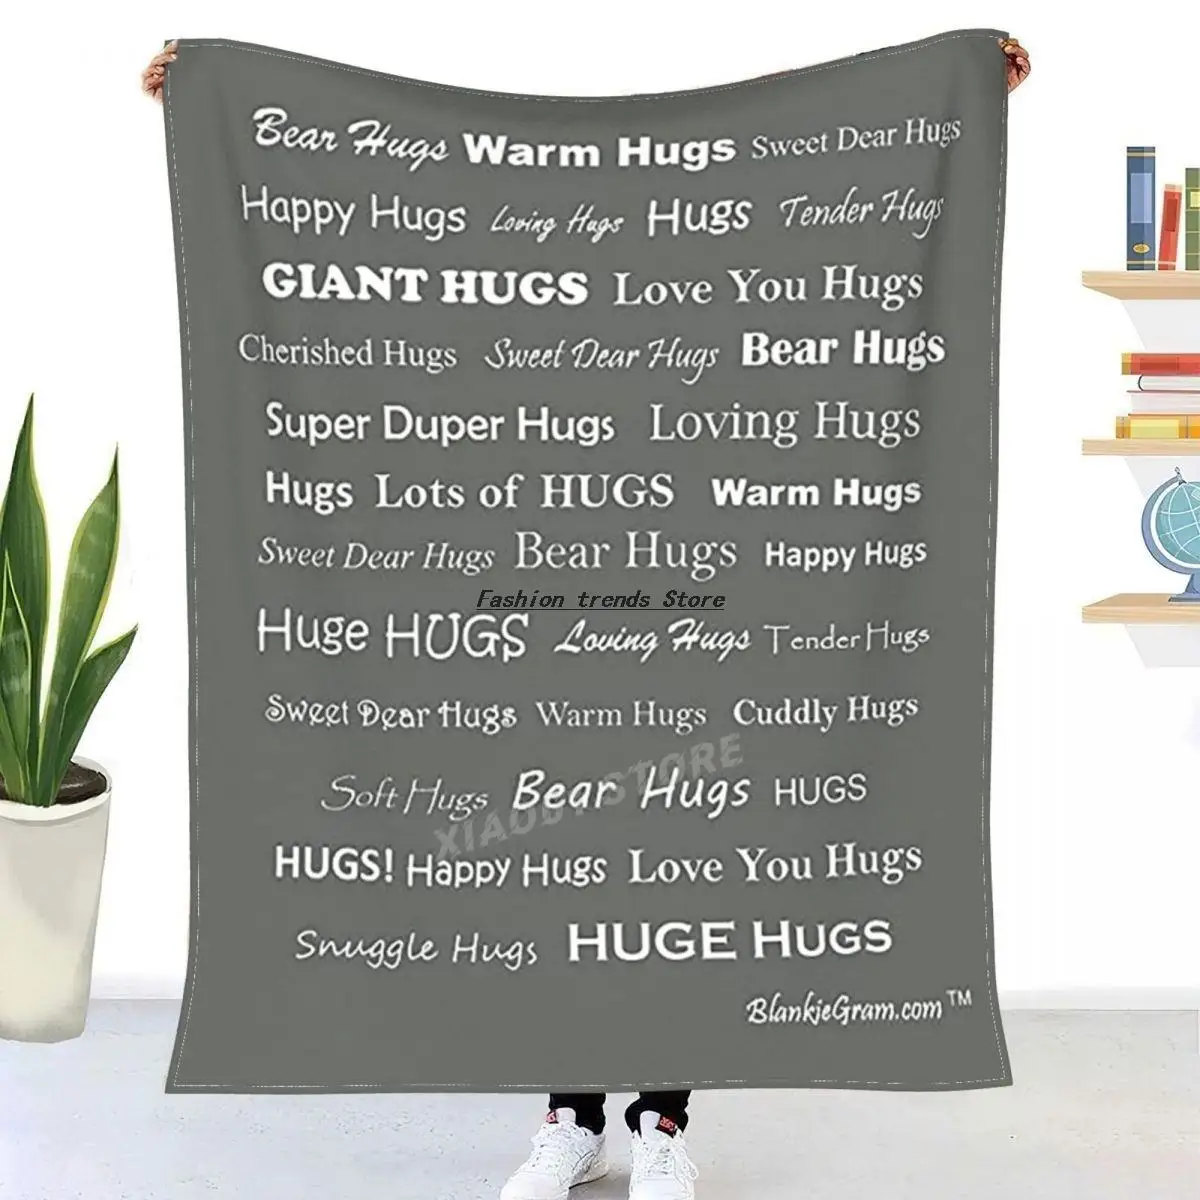 Bear Hugs Warm Hugs Sweet Dear Hugs
Happy Hugs Loving Hugs Hugs Tender Hugs
GIANT HUGS Love You Hugs
Cherished Hugs Sweet Dear Hugs Bear Hugs
Super Duper Hugs Loving Hugs
Hugs Lots of HUGS Warm Hugs
Sweet Dear Hugs Bear Hugs Happy Hugs
Fashion trends Store
Huge HUGS Loving Hugs Tender Hugs
Sweet Dear Hugs Warm Hugs Cuddly Hugs
XIAODY STORE
Soft Hugs Bear Hugs HUGS
HUGS! Happy Hugs Love You Hugs
Snuggle Hugs HUGE HUGS
BlankieGram.com™